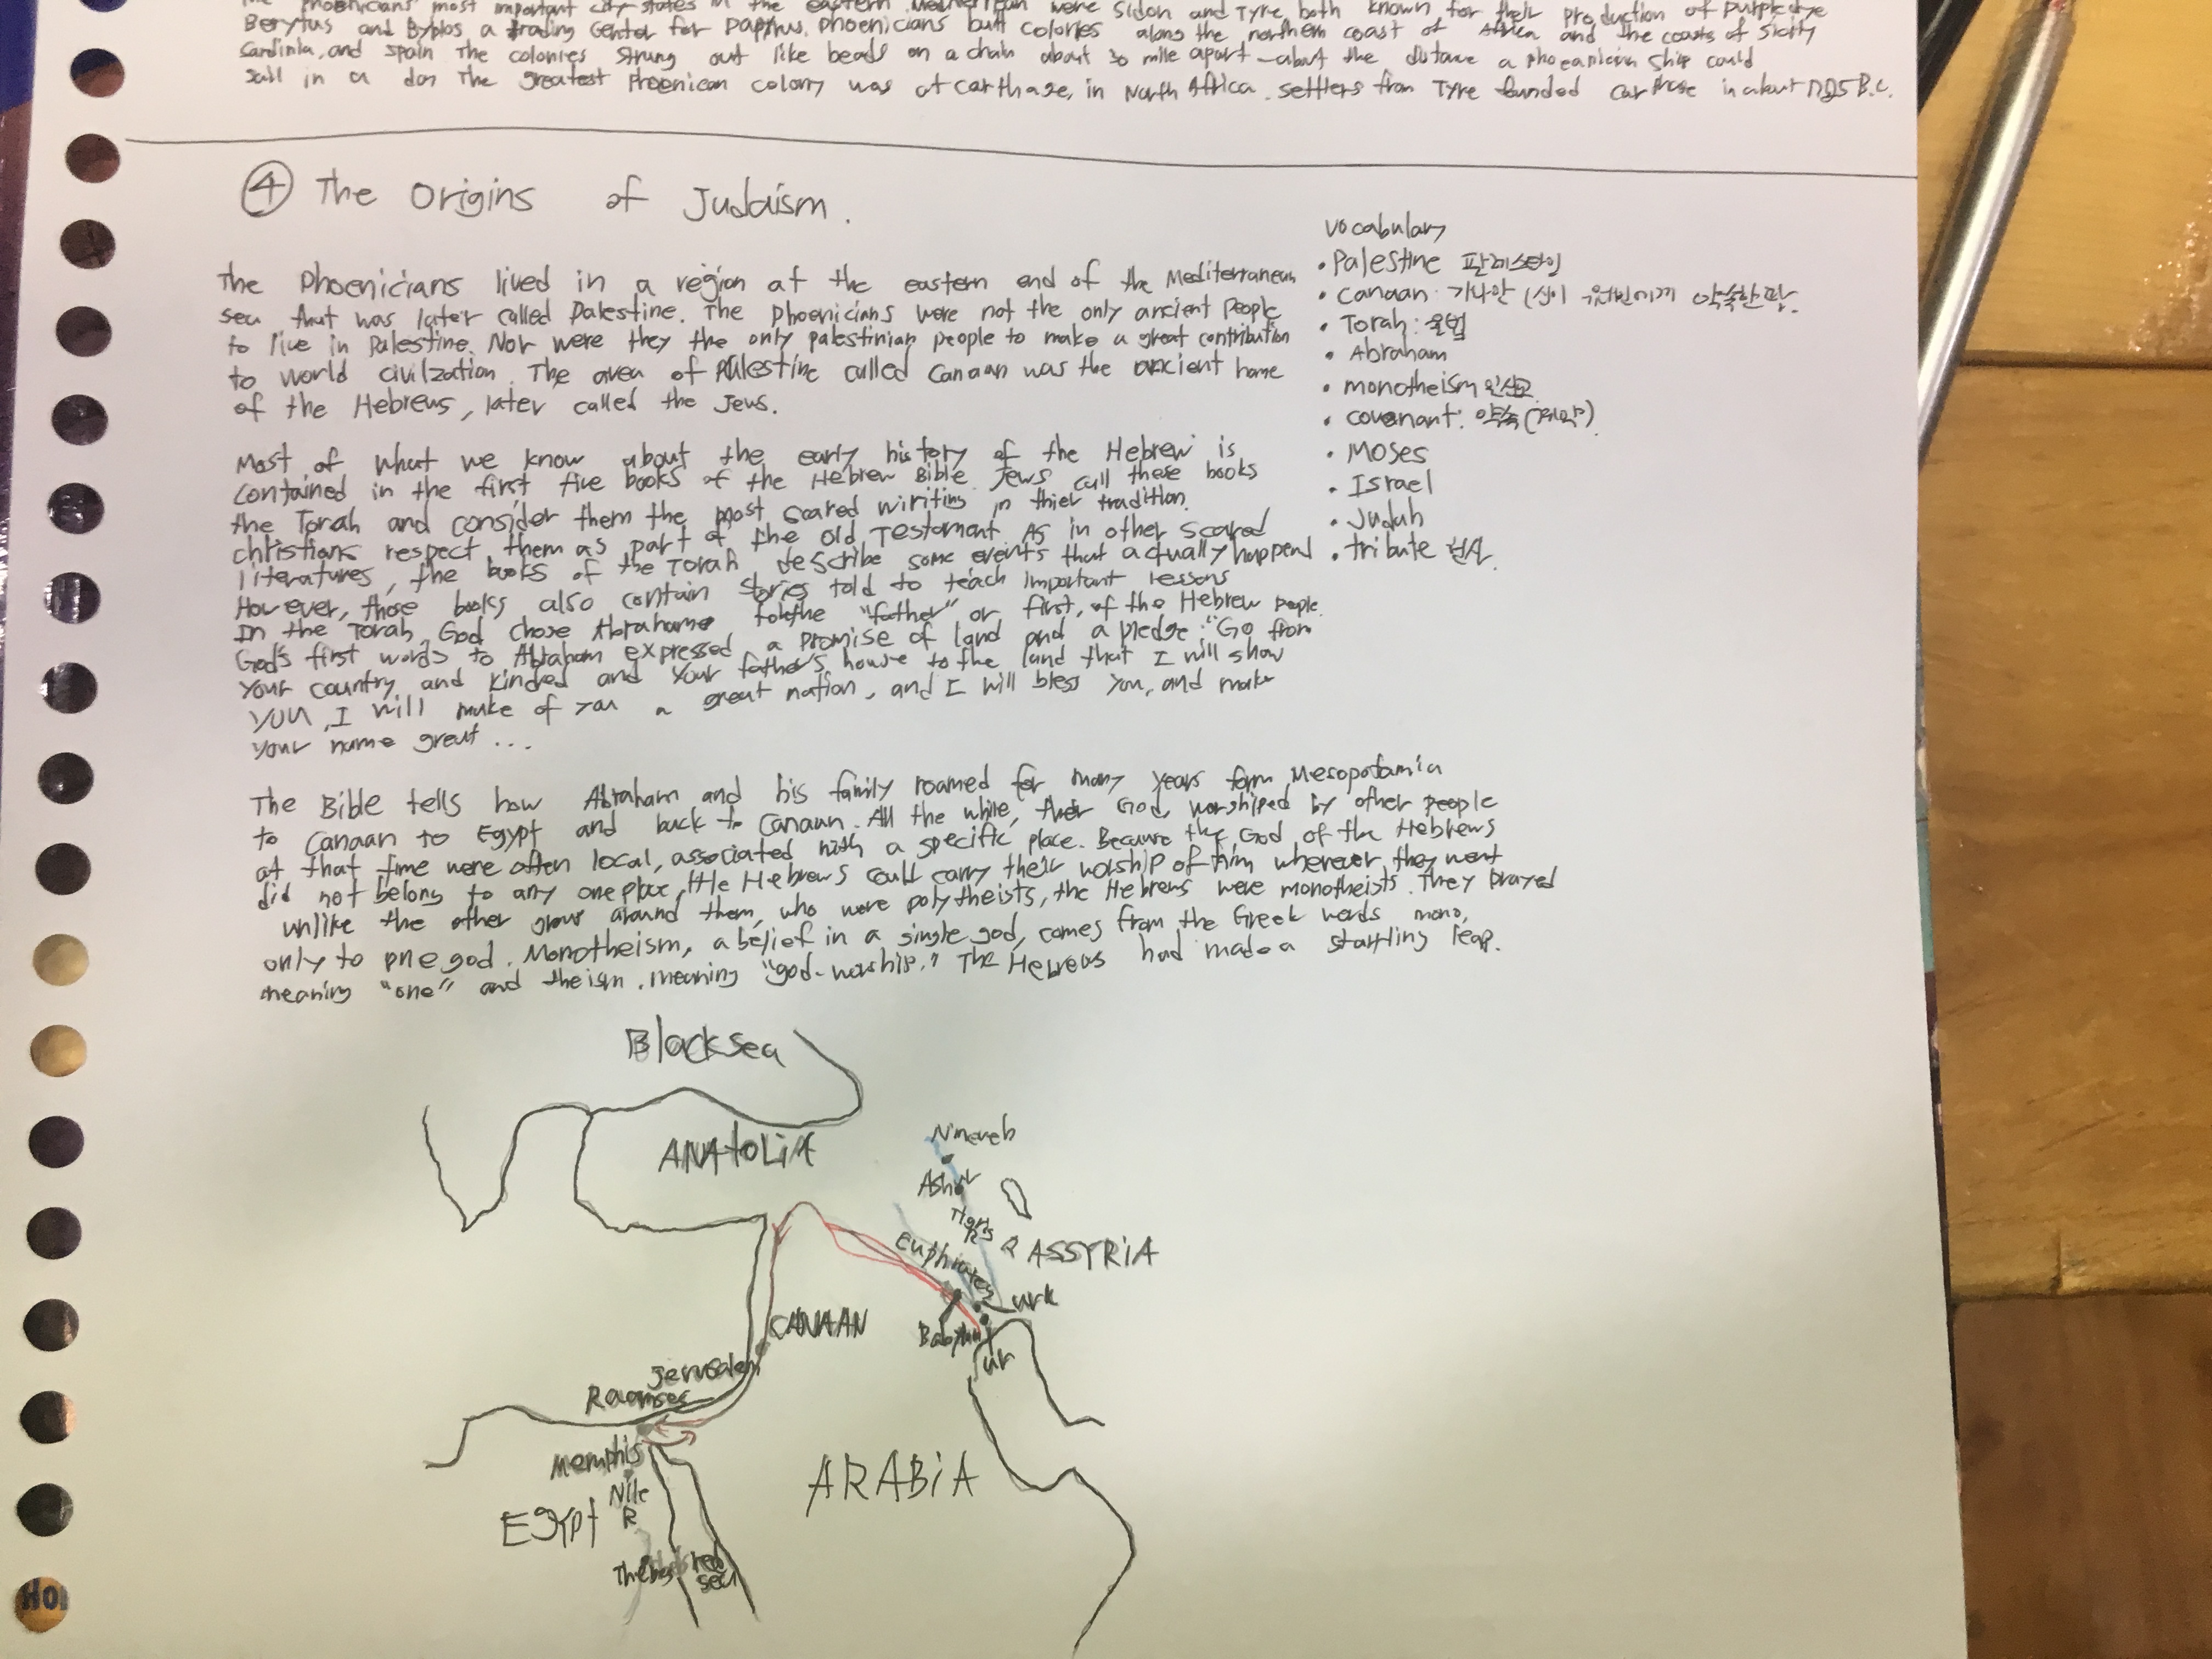 The Phoenicians most important city-states in the eastern were Sidon and Tyre both known for their production of purple dye
Berytus and Byblos a trading Center for phoenicians built colonies along the northern coast of Africa and the coasts of
Sardinia, and spain The colonies Strung out like beads on a chain about 30 mile apart - about the a ship could
sail in a The greatest colony was at carthage, in North Africa. settlers from Tyre founded in about B.C.
④ The Origins of Judaism.
The Phoenicians lived in a region at the eastern end of the Mediterranean
sea that was later called Palestine. The phoenicians were not the only ancient people
to live in Palestine. Nor were they the only palestinian people to make a great contribution
to world civilzation. The area of Palestine called Canaan was the ancient home
of the Hebrews, later called the Jews.
Most of what we know about the early history of the Hebrew is
contained in the first five books of the Hebrew Bible. Jews call these books
the Torah and consider them the most scared wiriting in thier tradition.
christians respect them as part of the old Testament. As in other scared
literatures, the books of the Torah describe some events that actually happend
However, those books also contain stories told to teach important lessons
In the Torah, God chose "father" or first, of the Hebrew people.
God's first words to Abraham expressed a promise of land and a pledge: "Go from
your country and kindred and your father's house to the land that I will show
you, I will make of you a great nation, and I will bless you, and make
your name great ...
The Bible tells how Abraham and his family roamed for many years form Mesopotamia
to Canaan to Egypt and back to Canaan. All the while, their God, worshiped by other people
at that time were often local, associated with a specific place. Because the God of the Hebrews
did not belong to any one place, the Hebrews could carry their worship of him wherever they went
unlike the other around them, who were polytheists, the Hebrews were monotheists. They prayed
only to one god. Monotheism, a belief in a single god, comes from the Greek words mono,
meaning "one" and theism, meaning "god-worship." The Hebrews had made a startling leap.
vocabulary
• Palestine
• Canaan: 가나안 (신이 약속한 땅.
• Torah: 율법
• Abraham
• monotheism
• covenant: 약속 (계약)
• Moses
• Israel
• Judah
• tribute
Black sea
ANAtOLiA
Nineveh
Ashur
Tigris
R
ASSYRiA
Euphrates
urk
Babylon
ur
CANAAN
Jerusalem
Raamses
Memphis
Nile
R
EGypt
ARABiA
Thebes
red
sea
HO